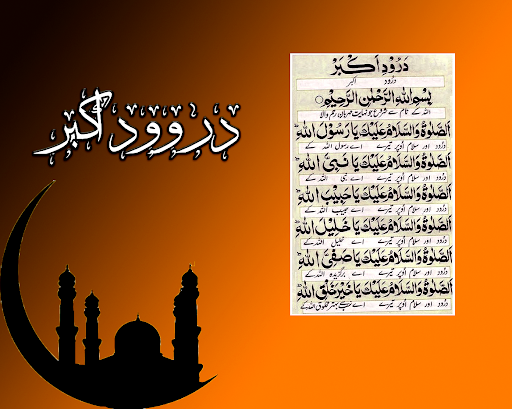 درود اکبر
دُرُوْدِ اَکْبَرْ
درود اکبر
بِسْمِ اللهِ الرَّحْمٰنِ الرَّحِيْمِ
اللہ کے نام سے شروع جو نہایت مہربان رحم والا
اَلصَّلٰوةُ وَالسَّلَامُ عَلَيْكَ يَا رَسُوْلَ اللهِ
درود اور سلام اوپر تیرے اے رسول اللہ کے
اَلصَّلٰوةُ وَالسَّلَامُ عَلَيْكَ يَا نَبِيَّ اللهِ
درود اور سلام اوپر تیرے اے نبی اللہ کے
اَلصَّلٰوةُ وَالسَّلَامُ عَلَيْكَ يَا حَبِيْبَ اللهِ
درود اور سلام اوپر تیرے اے حبیب اللہ کے
اَلصَّلٰوةُ وَالسَّلَامُ عَلَيْكَ يَا خَلِيْلَ اللهِ
درود اور سلام اوپر تیرے اے خلیل اللہ کے
اَلصَّلٰوةُ وَالسَّلَامُ عَلَيْكَ يَا صَفِيَّ اللهِ
درود اور سلام اوپر تیرے اے برگزیدہ اللہ کے
اَلصَّلٰوةُ وَالسَّلَامُ عَلَيْكَ يَا خَيْرَ خَلْقِ اللهِ
درود اور سلام اوپر تیرے اے بہتر مخلوق اللہ کے